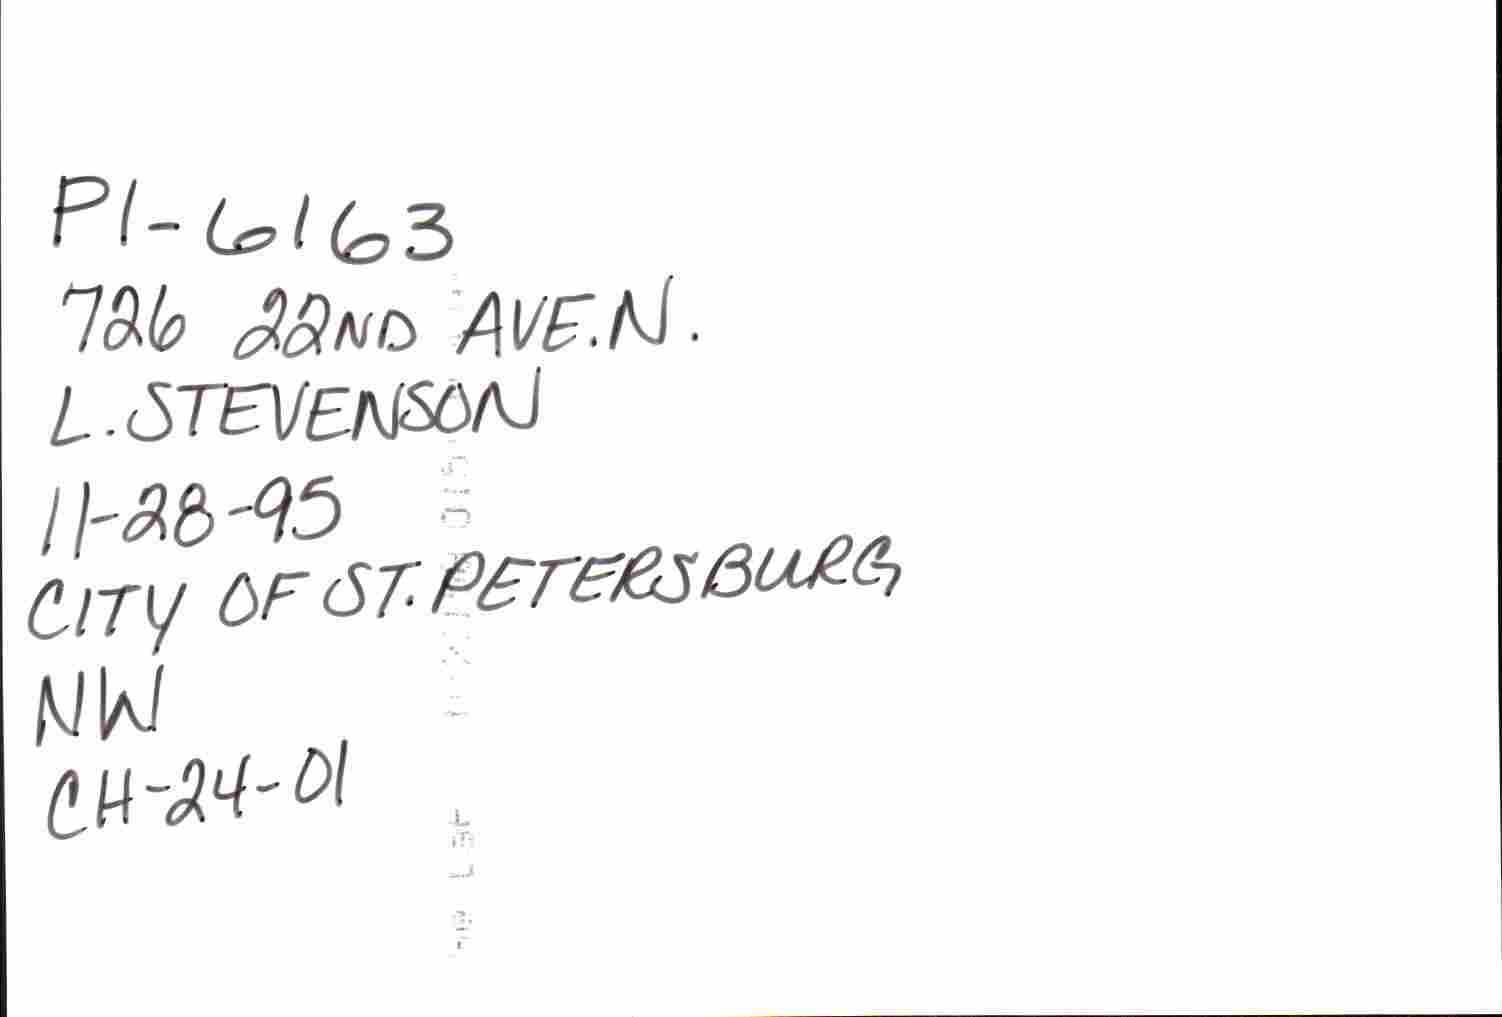 PI-6163
726 22ND AVE.N.
L.STEVENSON
11-28-95
CITY OF ST.PETERSBURG
NW
CH-24-01